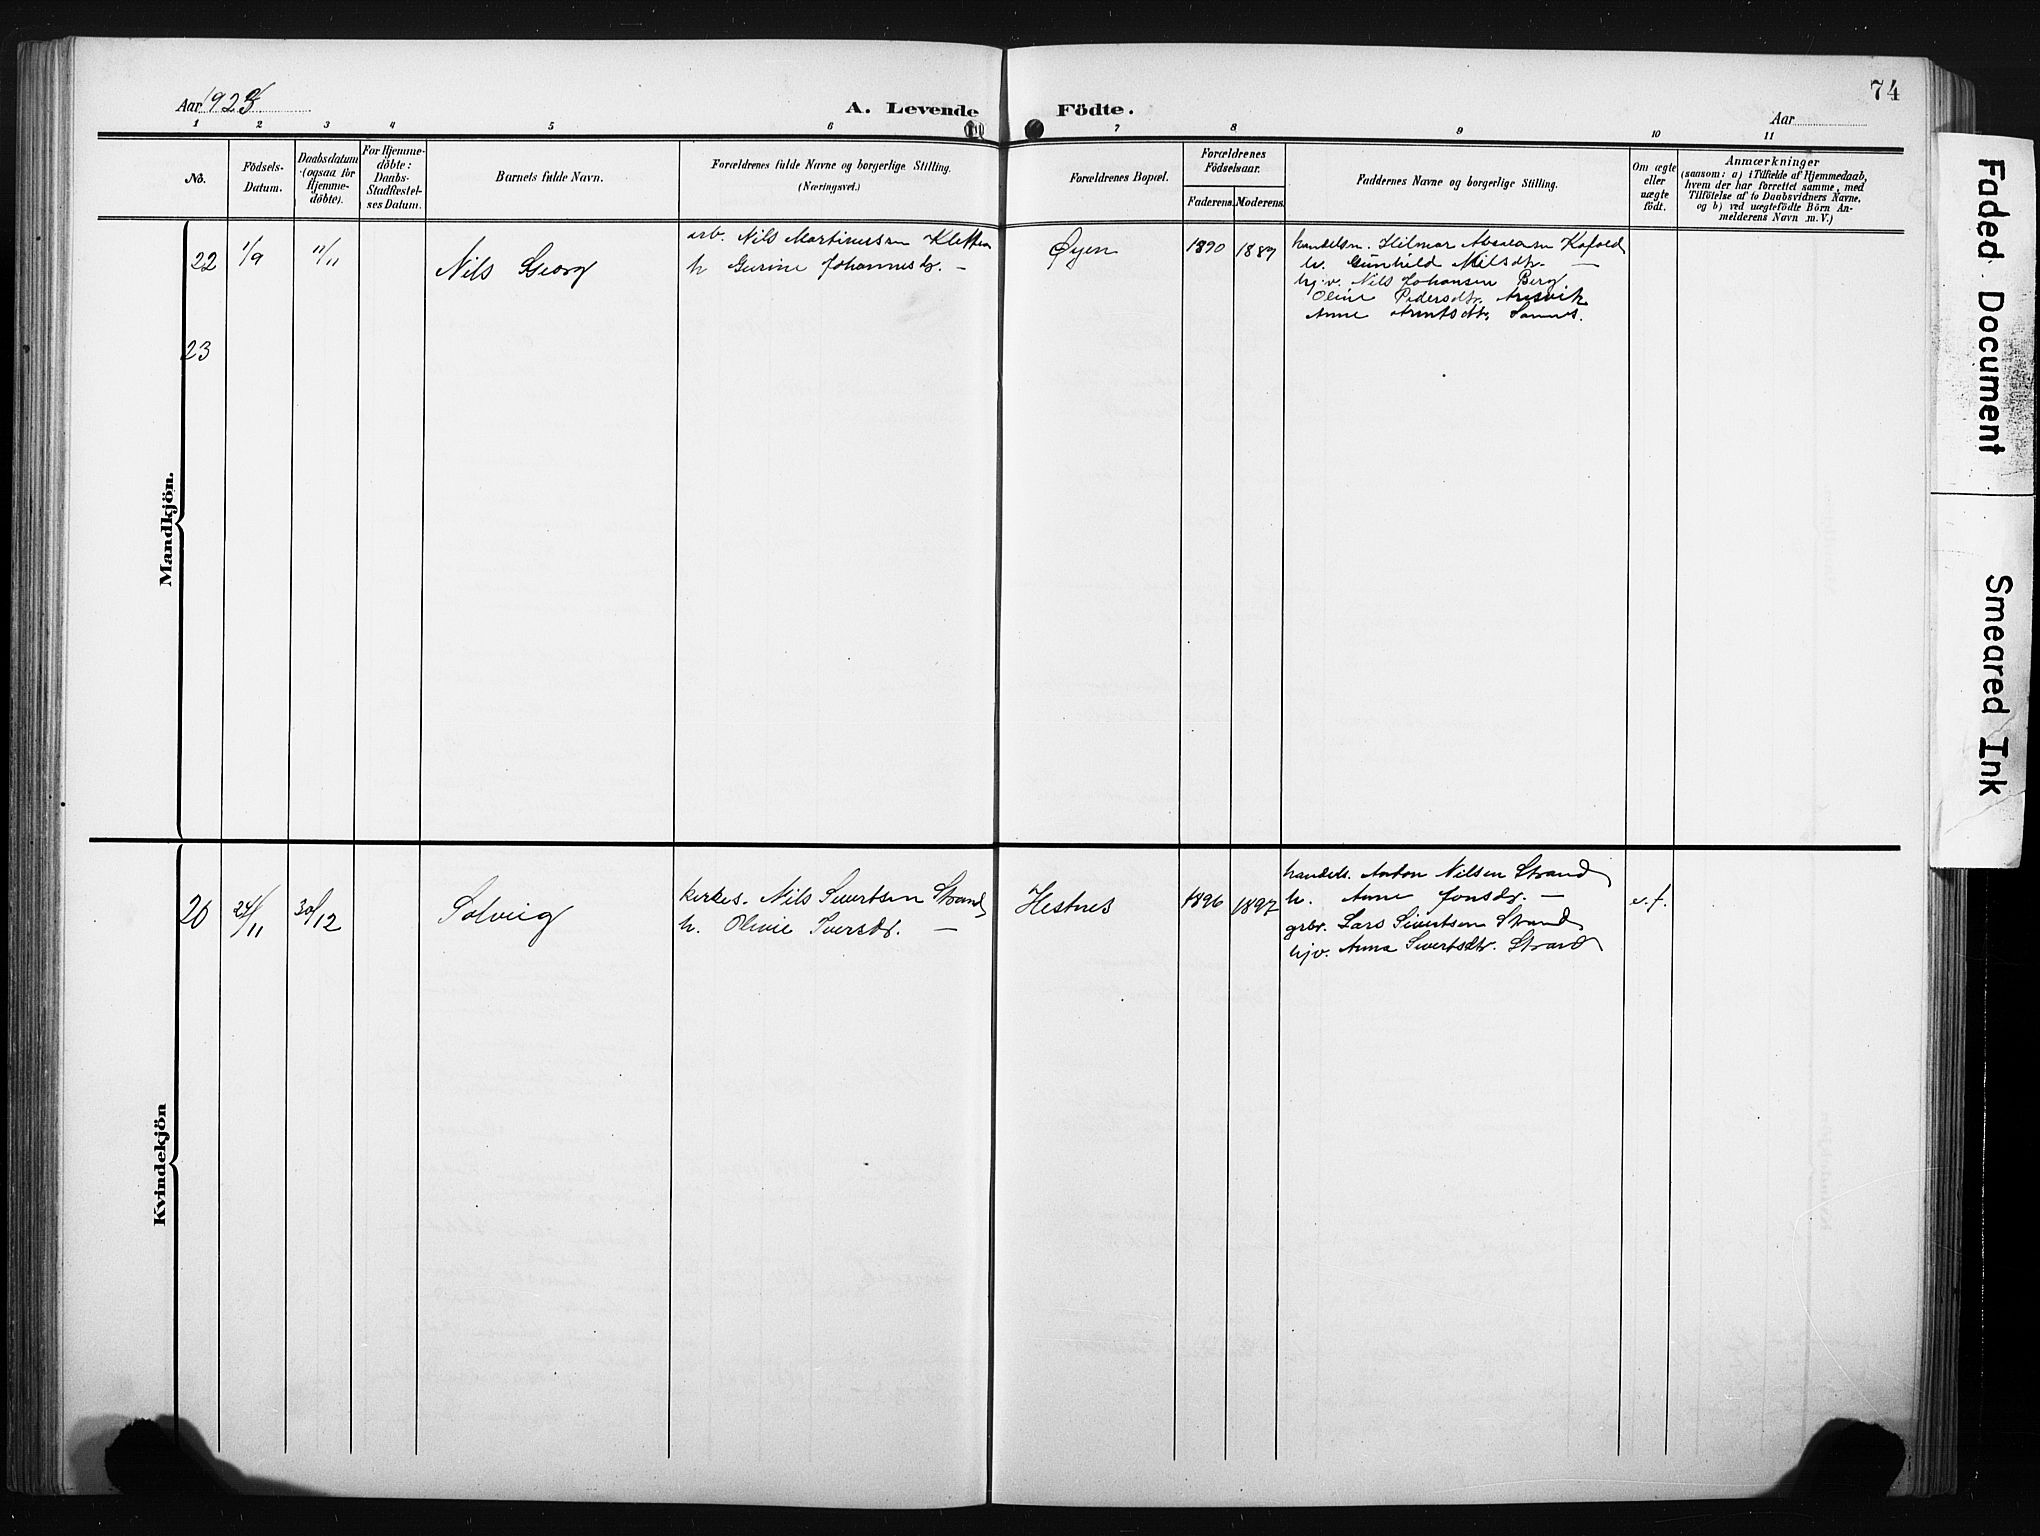 Aar 1923
A. Levende Födte.
Aar
74
1 2 3 4 5 6 7 8 9 10 11
No.
Födsels-
Datum.
Daabsdatum
(ogsaa for
Hjemme-
döbte).
For Hjemme-
döbte:
Daabs-
Stadfæstel-
ses Datum.
Barnets fulde Navn.
Forældrenes fulde Navne og borgerlige Stilling.
(Næringsvei.)
Forældrenes Bopæl.
Forældrenes
Födselsaar.
Faderens. Moderens.
Faddernes Navne og borgerlige Stilling.
Om ægte
eller
uægte
födt.
Anmærkninger
(saasom: a) i Tilfælde af Hjemmedaab,
hvem der har forrettet samme, med
Tilföielse af to Daabsvidners Navne,
og b) ved uægtefödte Börn An-
melderens Navn m. V.)
Mandkjön.
22 1/9 11/11 Nils Georg
arb. Nils Martinussen
h Gurine Johannesdr. —
Øyen 1890 1887
handelsm. Hilmar Absalonsen Kofoed
h. Gunhild Nilsdtr. —
hj.v. Nils Johansen Berg
Oline Pedersdtr. Aresvik
Anne Arntsdtr.
23
Kvindekjön
20 24/11 30/12 Solveig
kirkes. Nils Sivertsen Strand
h. Olivie Iversdr. —
Hestnes 1896 1897
handels. Anton Nilsen Strand
h. Anne Jonsdr. —
grbr. Lars Sivertsen Strand
hjv. Anna Sivertsdtr. Strand
e. f.
Faded Document
Smeared Ink